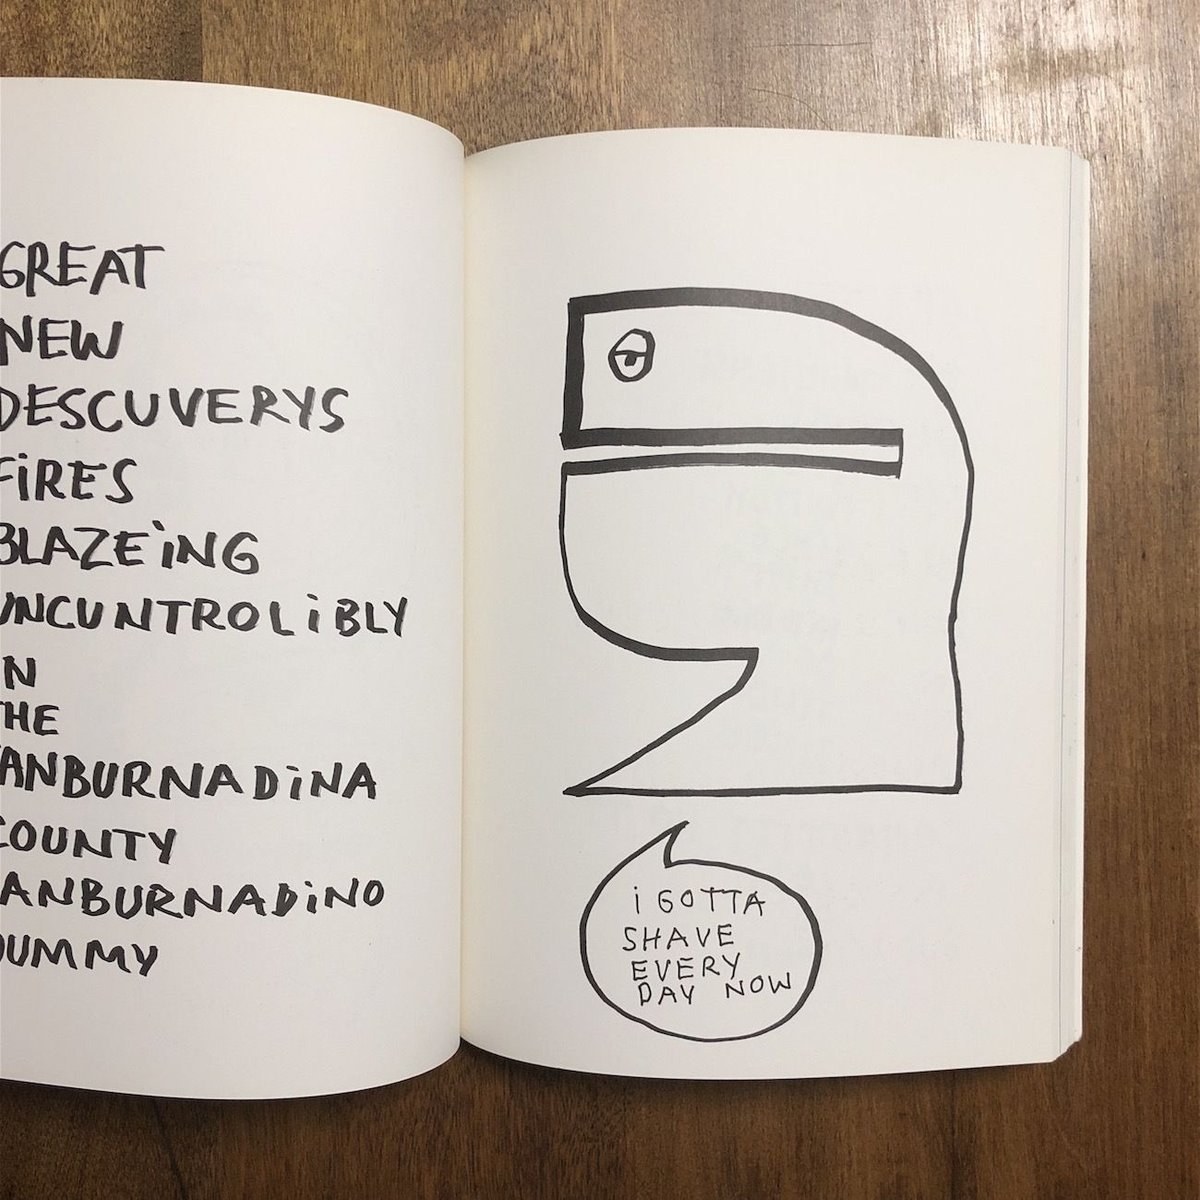 GREAT
NEW
DESCUVERYS
FiRES
BLAZEiNG
UNCUNTROLiBLY
N
THE
ANBURNADiNA
COUNTY
ANBURNADiNO
DUMMY
i GOTTA
SHAVE
EVERY
DAY NOW